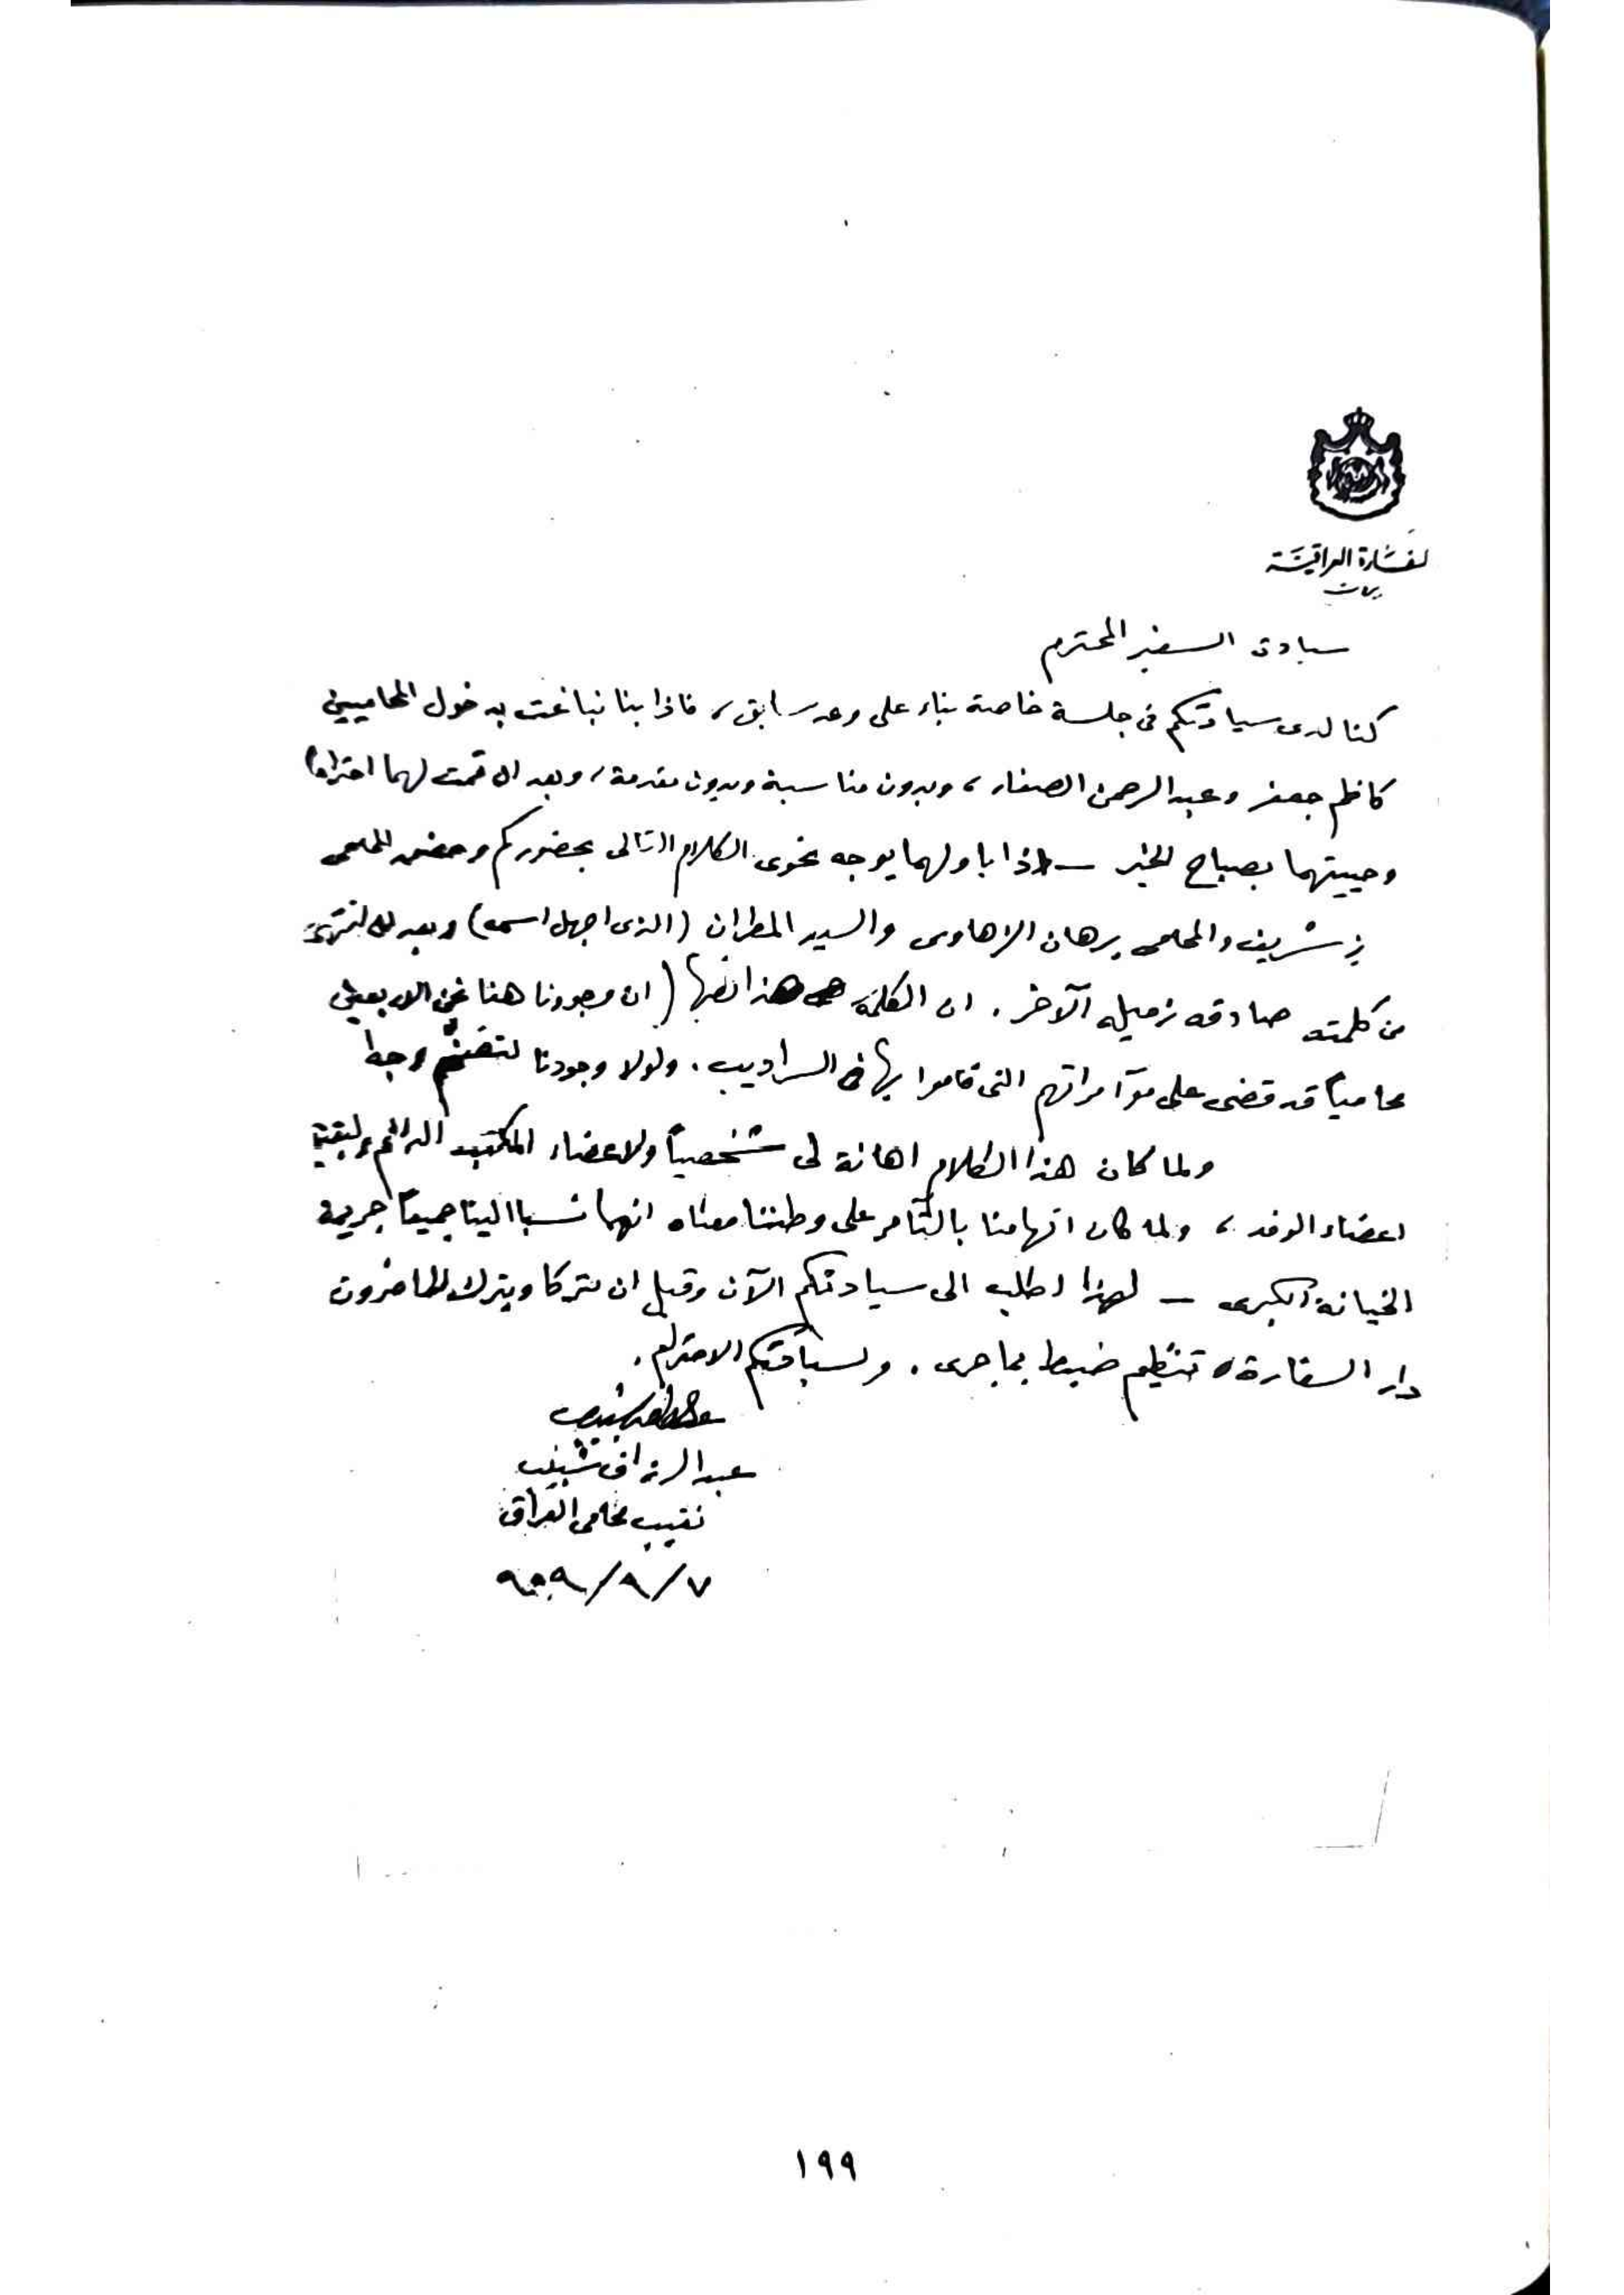 السفارة العراقية
سيادة السفير المحترم
كنا لدى سيادتكم في جلسة خاصة بناء على وعد سابق، فاذا بنا نباغت بدخول المحاميين
كاظم جعفر وعبد الرحمن الصفار، وبدون مناسبة وبدون مقدمة، وبعد ان قمت لهما احتراماً
وحييتهما بصباح الخير – اذا باولهما يوجه نحوى الكلام التالى بحضوركم وحضور المحامى
شريف والمحامى برهان الزهاوى والسيد المطران (الذى اجهل اسمه) وبعد ان انتهى
من كلمته صادقه زميله الآخر. ان الكلمة هذا نصها (ان وجودنا هنا نحن الاربعين
محامياً قد قضى على مؤامراتهم التى قاموا بها في السراديب. ولولا وجودنا
ولما كان هذا الكلام اهانة لى شخصياً ولاعضاء المكتب الدائم ولبقية
اعضاء الوفد، ولما كان اتهامنا بالتآمر على وطننا معناه انهما نسبا الينا جميعاً جريمة
الخيانة الكبرى – لهذا اطلب الى سيادتكم الآن وقبل ان يتركا ويترك الحاضرون
دار السفارة تنظيم ضبط بما جرى. ولسيادتكم الاحترام.
عبد الرزاق شبيب
نقيب محامى العراق
٧/٩/٩٥٩
١٩٩